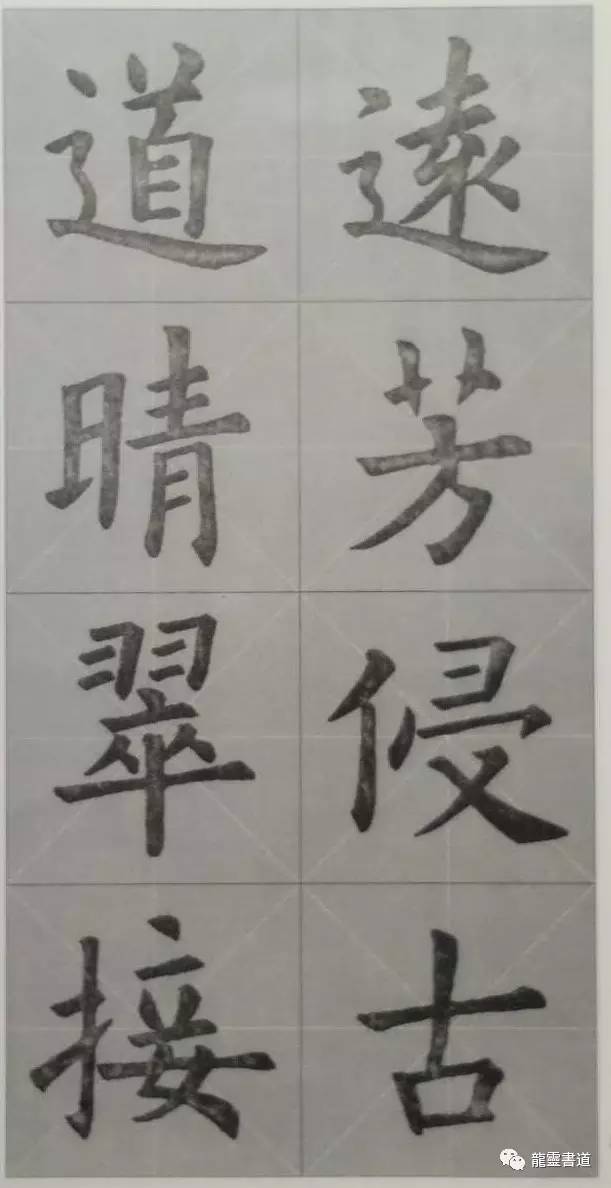 遠芳侵古
道晴翠接
龍靈書道